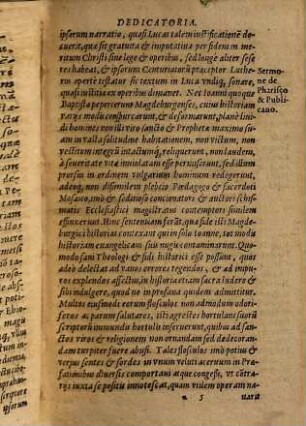 DEDICATORIA.
ipsorum narratio, quasi Lucas talem iustificationē do-
ueat, quæ sit gratuita & imputatiua per fidem in me-
ritum Christi sine lege & operibus, sed longè aliter sese
res habeat, & ipsorum Centuriatorū præceptor Luthe-
rus apertè testatur textum in Luca vndiq́; sonare,
quasi iustitia ex operibus dimanet. Nec Ioanni quoque
Baptistæ pepercerunt Magdeburgenses, cuius historiam
varijs modis conspurcarunt, & deformarunt, planè
homines non illi viro sancto & Prophetæ maximo su-
am in vasta solitudine habitationem, non victum, non
vestitum integrū, & intactumq́; reliquerunt, non laudem,
à seueritate vitæ inuiolatam esse permiserunt, sed illum
prorsus in ordinem vulgarium hominum redegerunt,
adeoq́; non dissimilem plebeio Pædagogo & sacerdoti
Mosaico, imò & sedatioso concionatori & auctori schis-
matis Ecclesiastici magistratus contemptori similem
effinxerunt.
burgici historias contexant quim solo Ioanne, tot modu
historiam euangelicam suis nugis contaminarunt. Quo-
modo tam Theologi & fidi historici esse possunt, quos
adeo delectat ad vanos errores tegendos, & ad impu-
ros explendos affectus, in historia etiam sacra ludere &
sibi indulgere, quod ne in prophana quidem admittitur.
Multos eiusmodi eorum flosculos non admodum odori-
feros ac parum salutares, isti agrestes hortulani suorū
scriptorū immundis hortulis inseruerunt, quibus ad san-
ctos viros & religionem non ornandam sed dedecoran-
dam turpiter fuere abusi. Tales flosculos imò potiùs &
veriùs sentes & sordes in vnum veluti aceruum in Præ-
fationibus diuersis comportaui atque congessi, vt cōtra-
rijs iuxta se positis innotescat, quam vilem operam na-
a 5 uara
Sermo-
ne de
Pharisęo
& Publi-
cano.